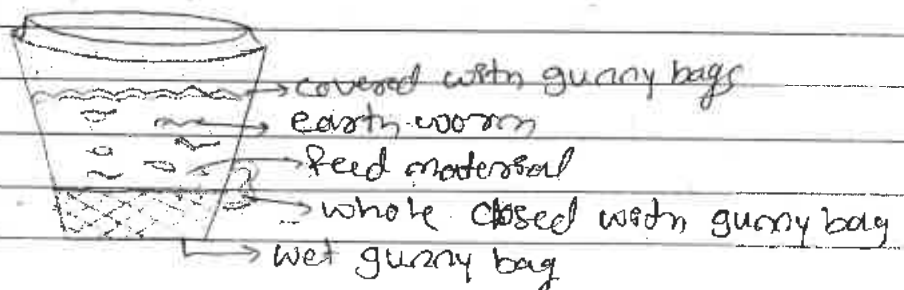 covered with gunny bags
earth worm
feed material
whole closed with gunny bag
wet gunny bag